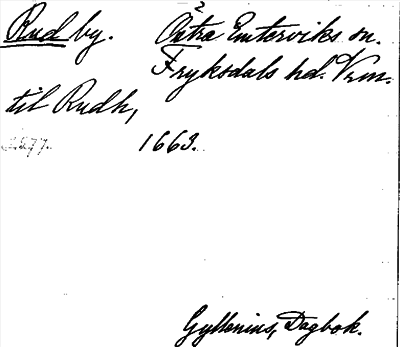 Rud by. Östra Emterviks sn.
Fryksdals hd. Vrm.
til Rudh,
1663.
Gyllenius, Dagbok.